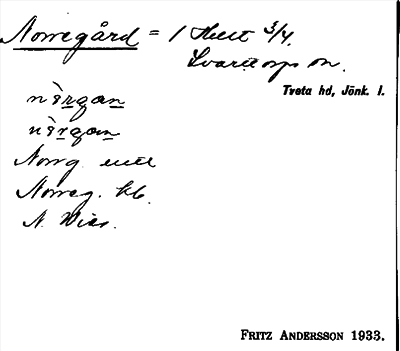 Norregård = 1 Hest 3/4.
Svarttorps sn.
Tveta hd, Jönk. l.
nòrgan
nòrgan
Norrg.
Norreg. kb.
N.
FRITZ ANDERSSON 1933.